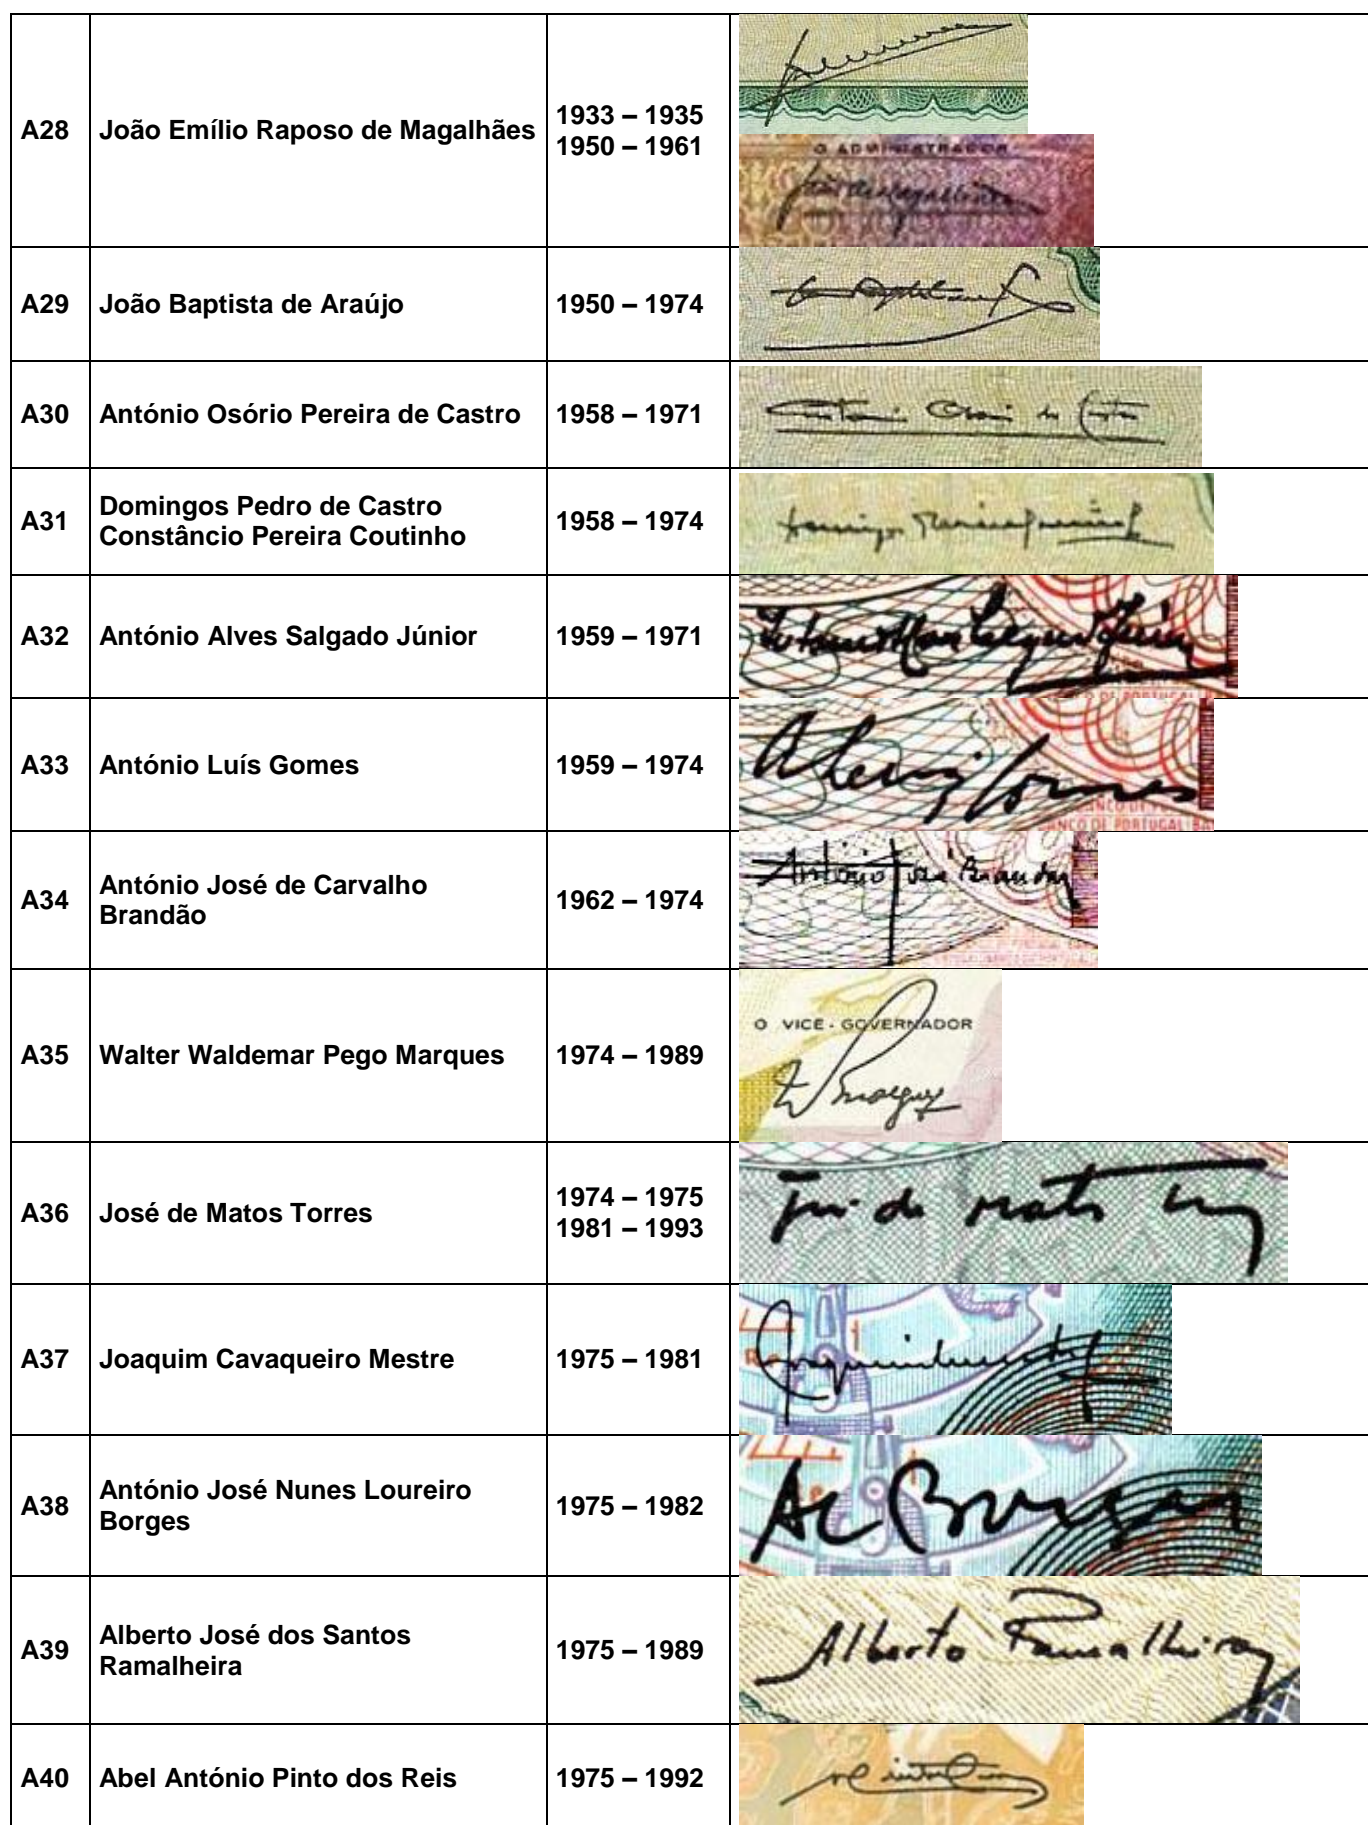 A28 João Emílio Raposo de Magalhães 1933 – 1935
1950 – 1961
O ADMINISTRADOR
A29 João Baptista de Araújo 1950 – 1974
A30 António Osório Pereira de Castro 1958 – 1971
A31 Domingos Pedro de Castro
Constâncio Pereira Coutinho 1958 – 1974
A32 António Alves Salgado Júnior 1959 – 1971
A33 António Luís Gomes 1959 – 1974
BANCO DE PORTUGAL
A34 António José de Carvalho
Brandão 1962 – 1974
António José Brandão
A35 Walter Waldemar Pego Marques 1974 – 1989
O VICE - GOVERNADOR
A36 José de Matos Torres 1974 – 1975
1981 – 1993
A37 Joaquim Cavaqueiro Mestre 1975 – 1981
A38 António José Nunes Loureiro
Borges 1975 – 1982
Borges
A39 Alberto José dos Santos
Ramalheira 1975 – 1989
Alberto Ramalheira
A40 Abel António Pinto dos Reis 1975 – 1992